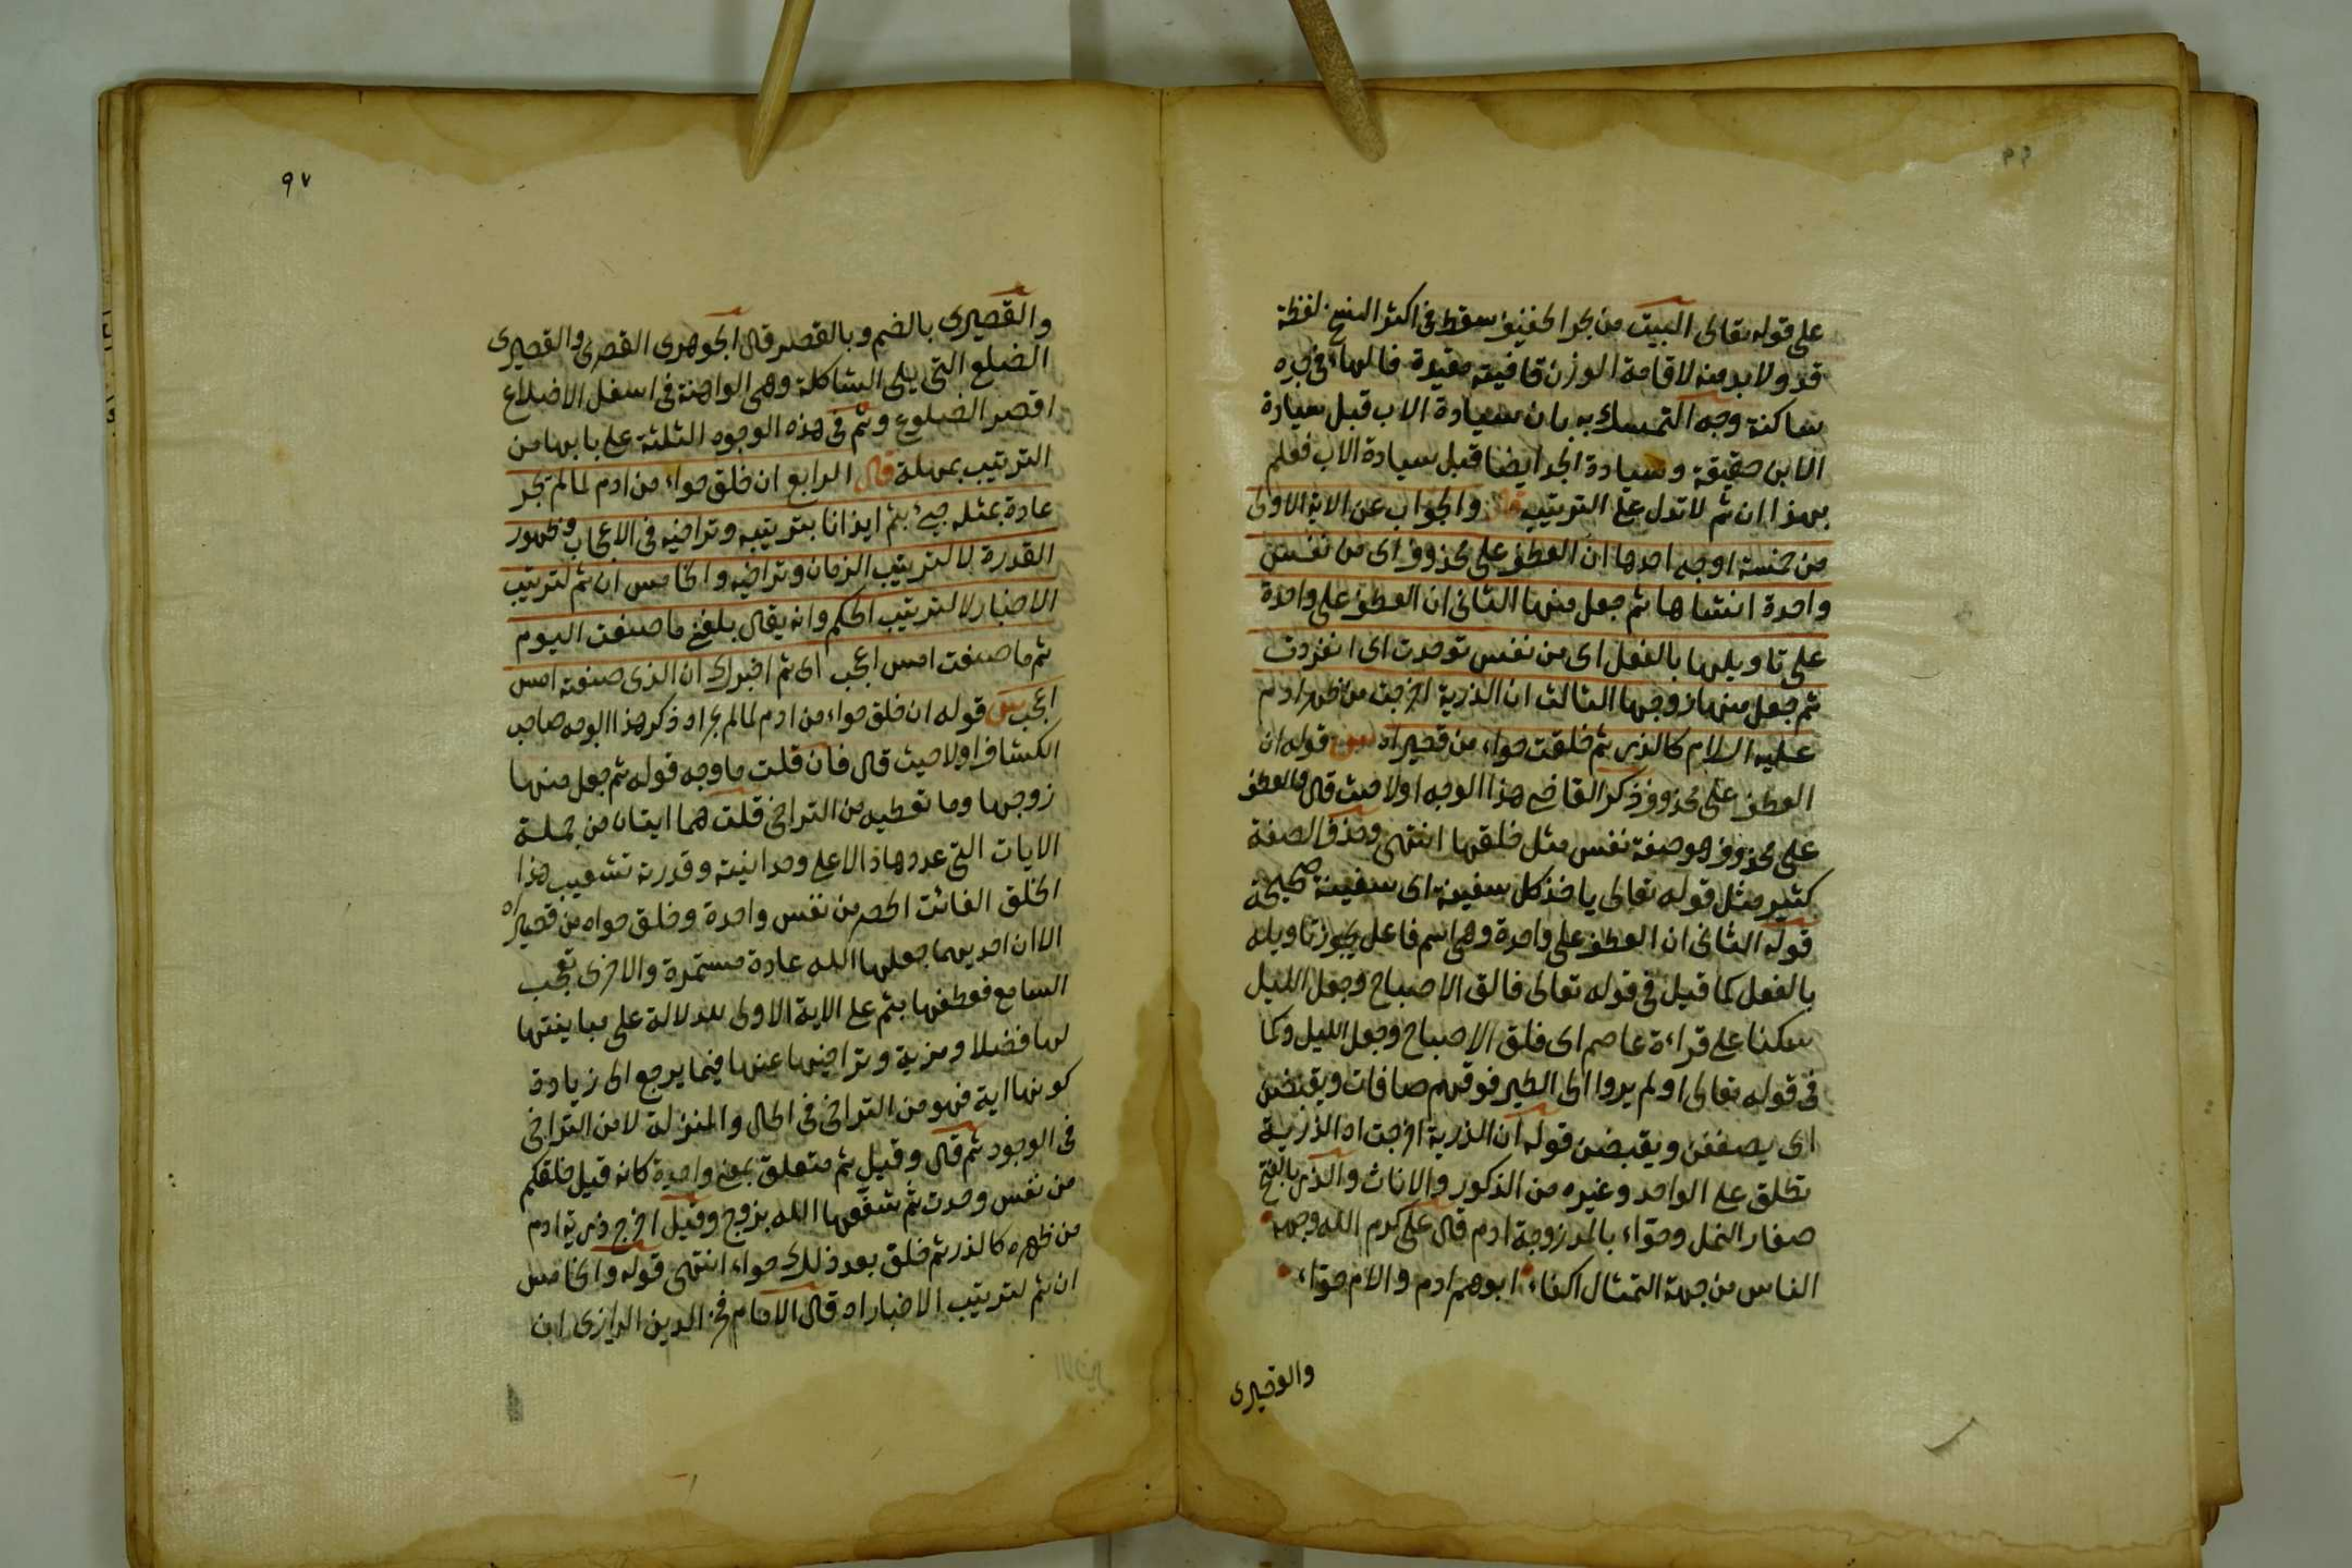 ٩٦
على قوله تعالى البيت من بحر الخفيف سقط فى اكثر النسخ لفظة
قد ولا بد منه لاقامة الوزن قافيته مقيدة فالهاء فى جده
ساكنة وجه التمسك به بان سيادة الاب قبل سيادة
الابن حقيقة وسيادة الجد ايضا قبل سيادة الاب فعلم
بهذا ان ثم لا تدل على الترتيب قال والجواب عن الاية الاولى
من خمسة اوجه احدها ان العطف على محذوف اى من نفس
واحدة انشاها ثم جعل منها الثانى ان العطف على واحدة
على تاويلها بالفعل اى من نفس توحدت اى انفردت
ثم جعل منها زوجها الثالث ان الذرية اخرجت من ظهر ادم
عليه السلام كالذر ثم خلقت حواء من قصيراه قوله ان
العطف على محذوف ذكر القاضى هذا الوجه اولا حيث قال والعطف
على محذوف هو صفة نفس مثل خلقها انتهى وحذف الصفة
كثير مثل قوله تعالى ياخذ كل سفينة اى سفينة صحيحة
قوله الثانى ان العطف على واحدة وهى اسم فاعل يجوز تاويله
بالفعل كما قيل فى قوله تعالى فالق الاصباح وجعل الليل
سكنا على قراءة عاصم اى فلق الاصباح وجعل الليل وكما
فى قوله تعالى اولم يروا الى الطير فوقهم صافات ويقبضن
اى يصففن ويقبضن قوله ان الذرية اخرجت اه الذرية
تطلق على الواحد وغيره من الذكور والاناث والذر بالفتح
صغار النمل وحوّاء بالمد زوجة ادم قال على كرم الله وجهه
الناس من جهة التمثال اكفاء ابوهم ادم والام حوّاء
والقصيرى
٩٧
والقصيرى بالضم وبالقصر قال الجوهرى القصرى والقصيرى
الضلع التى يلى الشاكلة وهى الواهنة فى اسفل الاضلاع
اقصر الضلوع وثم فى هذه الوجوه الثلثة على بابها من
الترتيب بمهلة قال الرابع ان خلق حواء من ادم لما لم تجر
عادة بمثله جئ بثم ايذانا بترتيبه وتراخيه فى الاعجاب وظهور
القدرة لا لترتيب الزمان وتراخيه والخامس ان ثم لترتيب
الاخبار لا لترتيب الحكم وانه يقال بلغنى ما صنعت اليوم
ثم ما صنعت امس اعجب اى ثم اخبرك ان الذى صنعته امس
اعجب قوله ان خلق حواء من ادم لما لم تجر اه ذكر هذا الوجه صاحب
الكشاف اولا حيث قال فان قلت ما وجه قوله ثم جعل منها
زوجها وما تعطيه من التراخى قلت هما ايتان من جملة
الايات التى عددها دالا على وحدانيته وقدرته تشعيب هذا
الخلق الفائت الحصر من نفس واحدة وخلق حواء من قصيراه
الا ان احديهما جعلها الله عادة مستمرة والاخرى تعجب
السامع فعطفها بثم على الاية الاولى للدلالة على مباينتها
لها فضلا ومزية وتراخيها عنها فيما يرجع الى زيادة
كونها اية فهو من التراخى فى الحال والمنزلة لا من التراخى
فى الوجود ثم قال وقيل ثم متعلق بمعنى واحدة كانه قيل خلقكم
من نفس وحدت ثم شفعها الله بزوج وقيل اخرج ذرية ادم
من ظهره كالذر ثم خلق بعد ذلك حواء انتهى قوله والخامس
ان ثم لترتيب الاخبار اه قال الامام فخر الدين الرازى ان